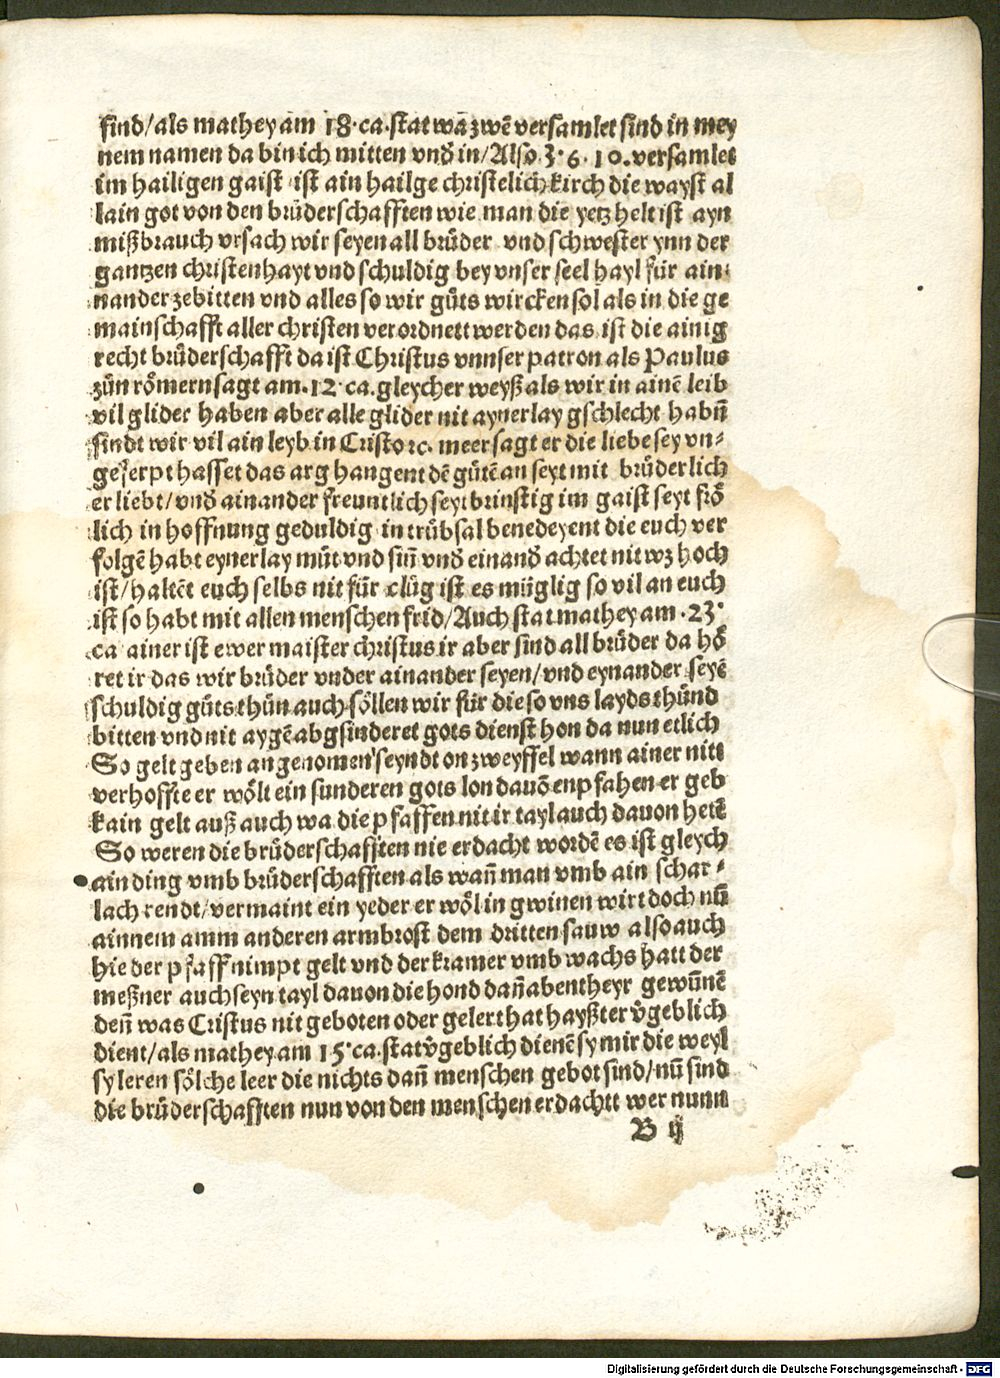 sind/als mathey am 18·ca·stat wā zwē versamlet sind in mey
nem namen da bin ich mitten vnd̄ in/Also 3·6·10.versamlet
im hailigen gaist ist ain hailge christelich kirch die wayst al
lain got von den brüderschafften wie man die yetz helt ist ayn
mißbrauch vrsach wir seyen all brüder vnd schwester ynn der
gantzen christenhayt vnd schuldig bey vnser seel hayl für ain⸗
nander zebitten vnd alles so wir güts wircken sol als in die ge
mainschafft aller christen verordnett werden das ist die ainig
recht brüderschafft da ist Christus vnnser patron als Paulus
zün römern sagt am.12·ca.gleycher weyß als wir in ainē leib
vil glider haben aber alle glider nit aynerlay gschlecht habn̄
sindt wir vil ain leyb in Cristo ꝛc. meer sagt er die liebe sey vn⸗
geferpt hasset das arg hangent dē gütē an seyt mit brüderlich
er liebt/vnd̄ ainander freuntlich seyt brinstig im gaist seyt frö
lich in hoffnung geduldig in trübsal benedeyent die euch ver
folgē habt eynerlay müt vnd sin̄ vnd̄ einand̄ achtet nit wz hoch
ist/haltēt euch selbs nit für clüg ist es müglig so vil an euch
ist so habt mit allen menschen frid/Auch stat mathey am ·23·
ca ainer ist ewer maister christus ir aber sind all brüder da hö
ret ir das wir brüder vnder ainander seyen/vnd eynander seyē
schuldig güts thün auch söllen wir für die so vns layds thünd
bitten vnd nit aygē abgsinderet gots dienst hon da nun etlich
So gelt geben angenomen seyndt on zweyffel wann ainer nitt
verhoffte er wölt ein sunderen gots lon dauō enpfahen er geb
kain gelt auß auch wa die pfaffen nit ir tayl auch dauon hetē
So weren die brüderschafften nie erdacht wordē es ist gleych
ain ding vmb brüderschafften als wan̄ man vmb ain schar⸗
lach rendt/vermaint ein yeder er wöl in gwinen wirt doch nū
ainnem amm anderen armbrost dem dritten sauw also auch
hie der pfaff nimpt gelt vnd der kramer vmb wachs hatt der
meßner auch seyn tayl dauon die hond dan̄ abentheyr gewūnē
den̄ was Cristus nit geboten oder gelert hat hayßt er v̄geblich
dient/als mathey am 15·ca.stat v̄geblich dienē sy mir die weyl
sy leren sölche leer die nichts dan̄ menschen gebot sind/nū sind
die brüderschafften nun von den menschen erdachtt wer nunn
B ij
Digitalisierung gefördert durch die Deutsche Forschungsgemeinschaft - DFG